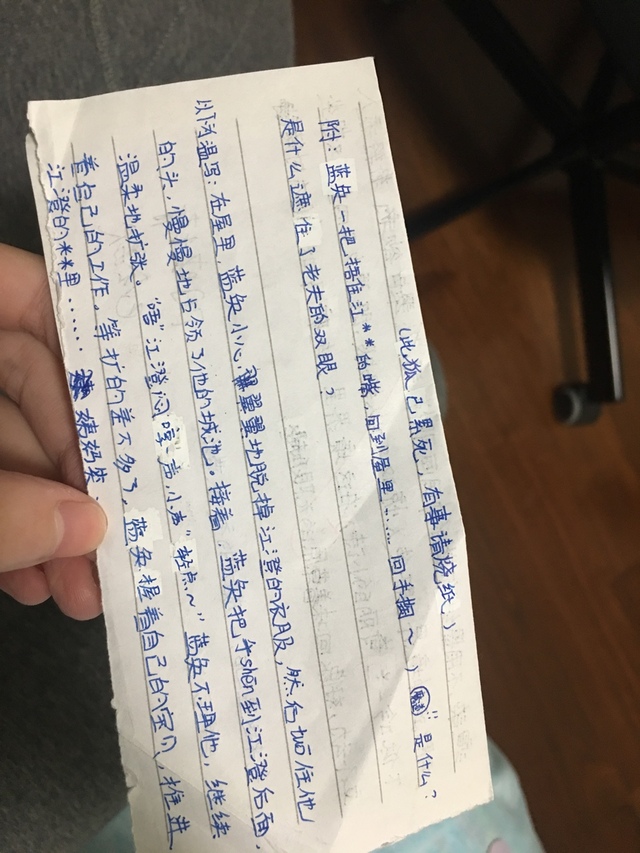 (此狐已累死,有事请烧纸)
附:蓝奂一把捂住江**的嘴,回到屋里…… 回手掴~) " 是什么?
是什么遮住了老夫的双眼?
在屋里 蓝奂小心翼翼地脱掉江澄的衣服,然后扣住他
的头,慢慢地占领了他的城池。接着,蓝奂把手shēn到江澄后面,
温柔地扩张。"唔"江澄闷哼声小声"轻点~"蓝奂不理他,继续
着自己的工作。等扩的差不多了,蓝奂握着自己的宝贝,推进
江澄的**里……